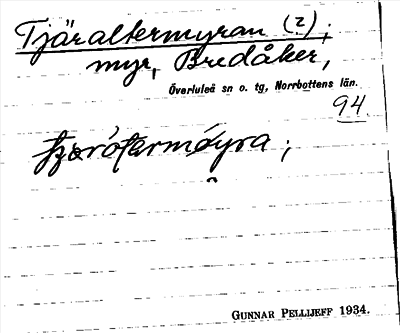 Tjäraltermyran (2);
myr, Bredåker,
Överluleå sn o. tg, Norrbottens län.
94.
GUNNAR PELLIJEFF 1934.